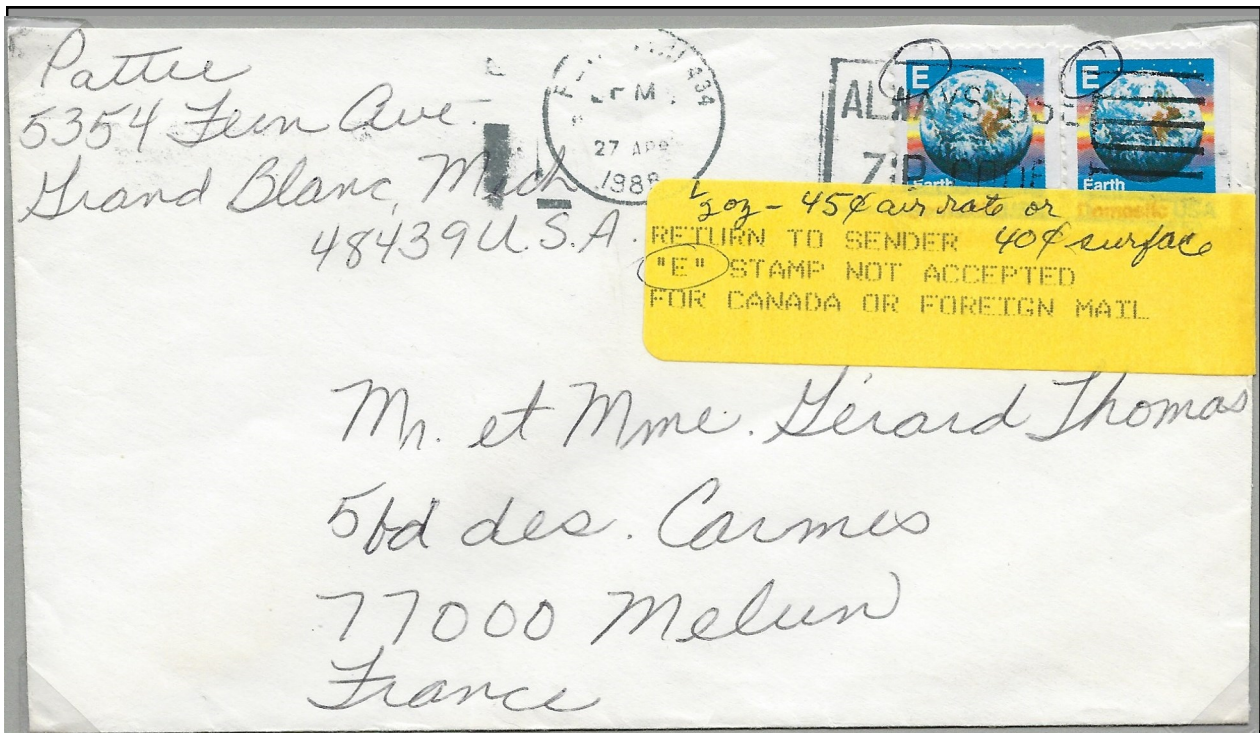 Pattie
5354 Fern Ave.
Grand Blanc, Mich
48439 U.S.A.
434
PM
27 APR
1988
ALWAYS USE
ZIP CODE
E
Earth
E
Earth
Domestic USA
1/2oz - 45¢ air rate or
RETURN TO SENDER 40¢ surface
"E" STAMP NOT ACCEPTED
FOR CANADA OR FOREIGN MAIL
Mr. et Mme. Gérard Thomas
5 bd des. Carmes
77000 Melun
France